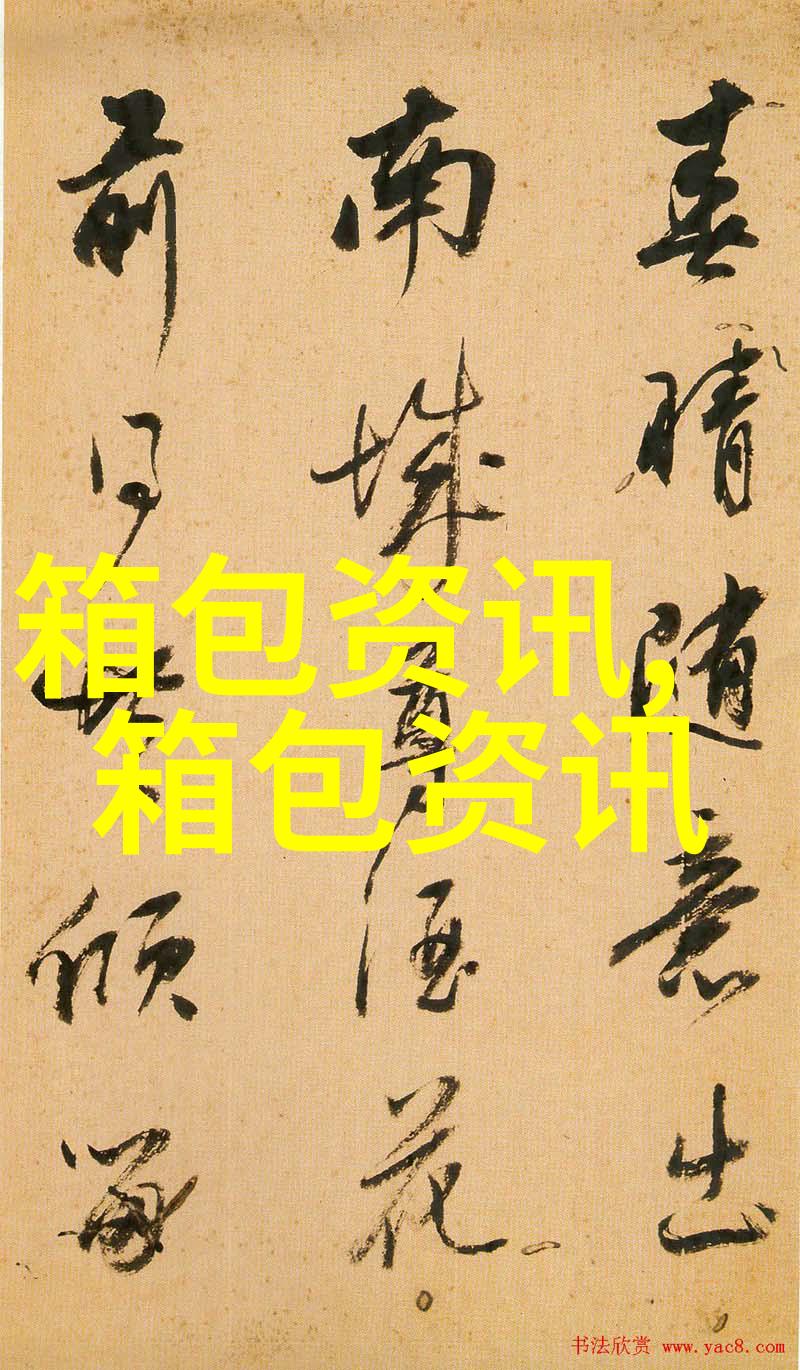 春晴随意出
南城尊酒花
前傾留
箱包资讯,
箱包资讯
书法欣赏 www.yac8.com